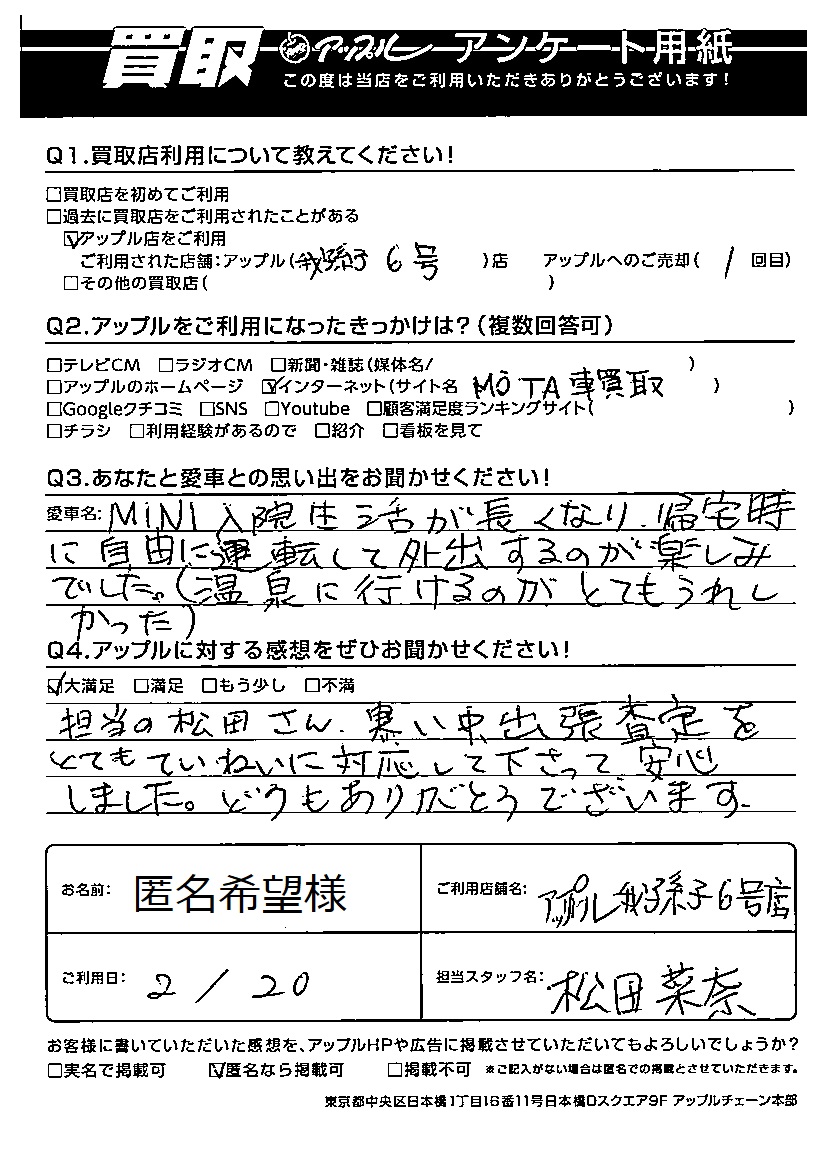 買取 アップル アンケート用紙
この度は当店をご利用いただきありがとうございます!
Q1.買取店利用について教えてください!
□買取店を初めてご利用
□過去に買取店をご利用されたことがある
☑アップル店をご利用
ご利用された店舗:アップル(我孫子 6号 )店 アップルへのご売却( 1 回目)
□その他の買取店( )
Q2.アップルをご利用になったきっかけは?(複数回答可)
□テレビCM □ラジオCM □新聞・雑誌(媒体名/ )
□アップルのホームページ ☑インターネット(サイト名 MOTA車買取 )
□Googleクチコミ □SNS □Youtube □顧客満足度ランキングサイト( )
□チラシ □利用経験があるので □紹介 □看板を見て
Q3.あなたと愛車との思い出をお聞かせください!
愛車名: MINI 入院生活が長くなり、帰宅時
に自由に運転して外出するのが楽しみ
でした。(温泉に行けるのがとてもうれし
かった)
Q4.アップルに対する感想をぜひお聞かせください!
☑大満足 □満足 □もう少し □不満
担当の松田さん、寒い中出張査定を
とてもていねいに対応して下さって、安心
しました。どうもありがとうございます。
お名前: 匿名希望様 ご利用店舗名: アップル我孫子6号店
ご利用日: 2/20 担当スタッフ名: 松田菜奈
お客様に書いていただいた感想を、アップルHPや広告に掲載させていただいてもよろしいでしょうか?
□実名で掲載可 ☑匿名なら掲載可 □掲載不可 ※ご記入がない場合は匿名での掲載とさせていただきます。
東京都中央区日本橋1丁目16番11号日本橋Dスクエア9F アップルチェーン本部